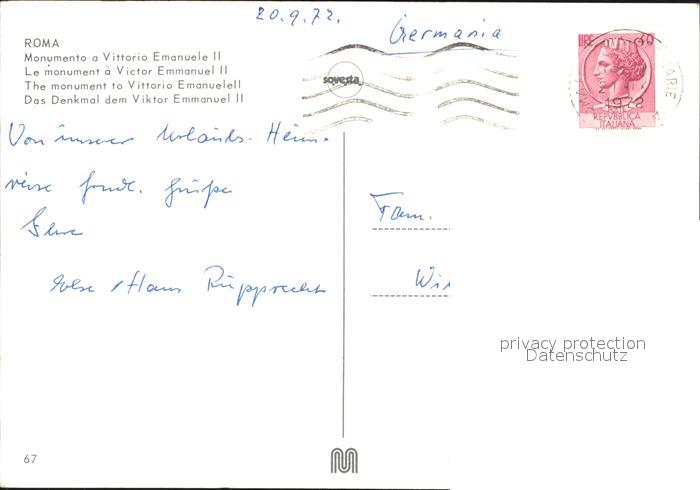 20.9.72.
Germania
ROMA
Monumento a Vittorio Emanuele II
Le monument à Victor Emmanuel II
The monument to Vittorio EmanueleII
Das Denkmal dem Viktor Emmanuel II
sovesta
LIRE 60
1972
REPVBBLICA
ITALIANA
Von unserer Urlaubs-Heim-
reise Grüße
Else + Hans Rupprecht
Fam.
Wi
privacy protection
Datenschutz
67